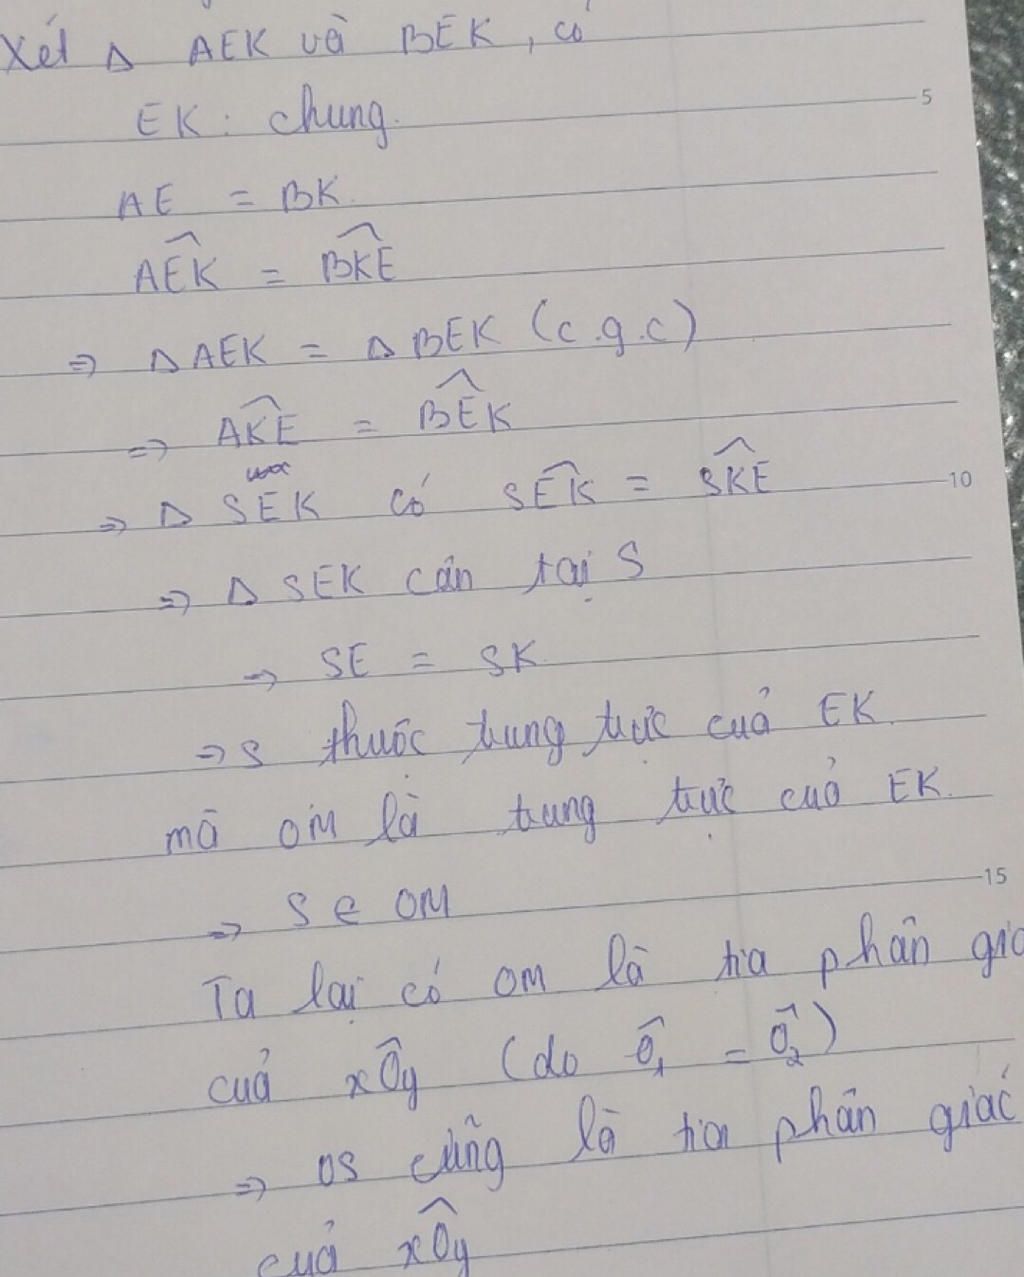 Xét Δ AEK và BEK, có
5
EK : chung.
AE = BK.
\widehat{AEK} = \widehat{BKE}
=> Δ AEK = Δ BEK (c.g.c)
=> \widehat{AKE} = \widehat{BEK}
=> Δ SEK có \widehat{SEK} = \widehat{SKE}
10
=> Δ SEK cân tại S
=> SE = SK.
=> S thuộc trung trực của EK.
mà OM là trung trực của EK.
15
=> S ∈ OM
Ta lại có OM là tia phân giác
của x\widehat{O}y (do \widehat{O}₁ = \widehat{O}₂)
=> OS cũng là tia phân giác
của \widehat{xOy}